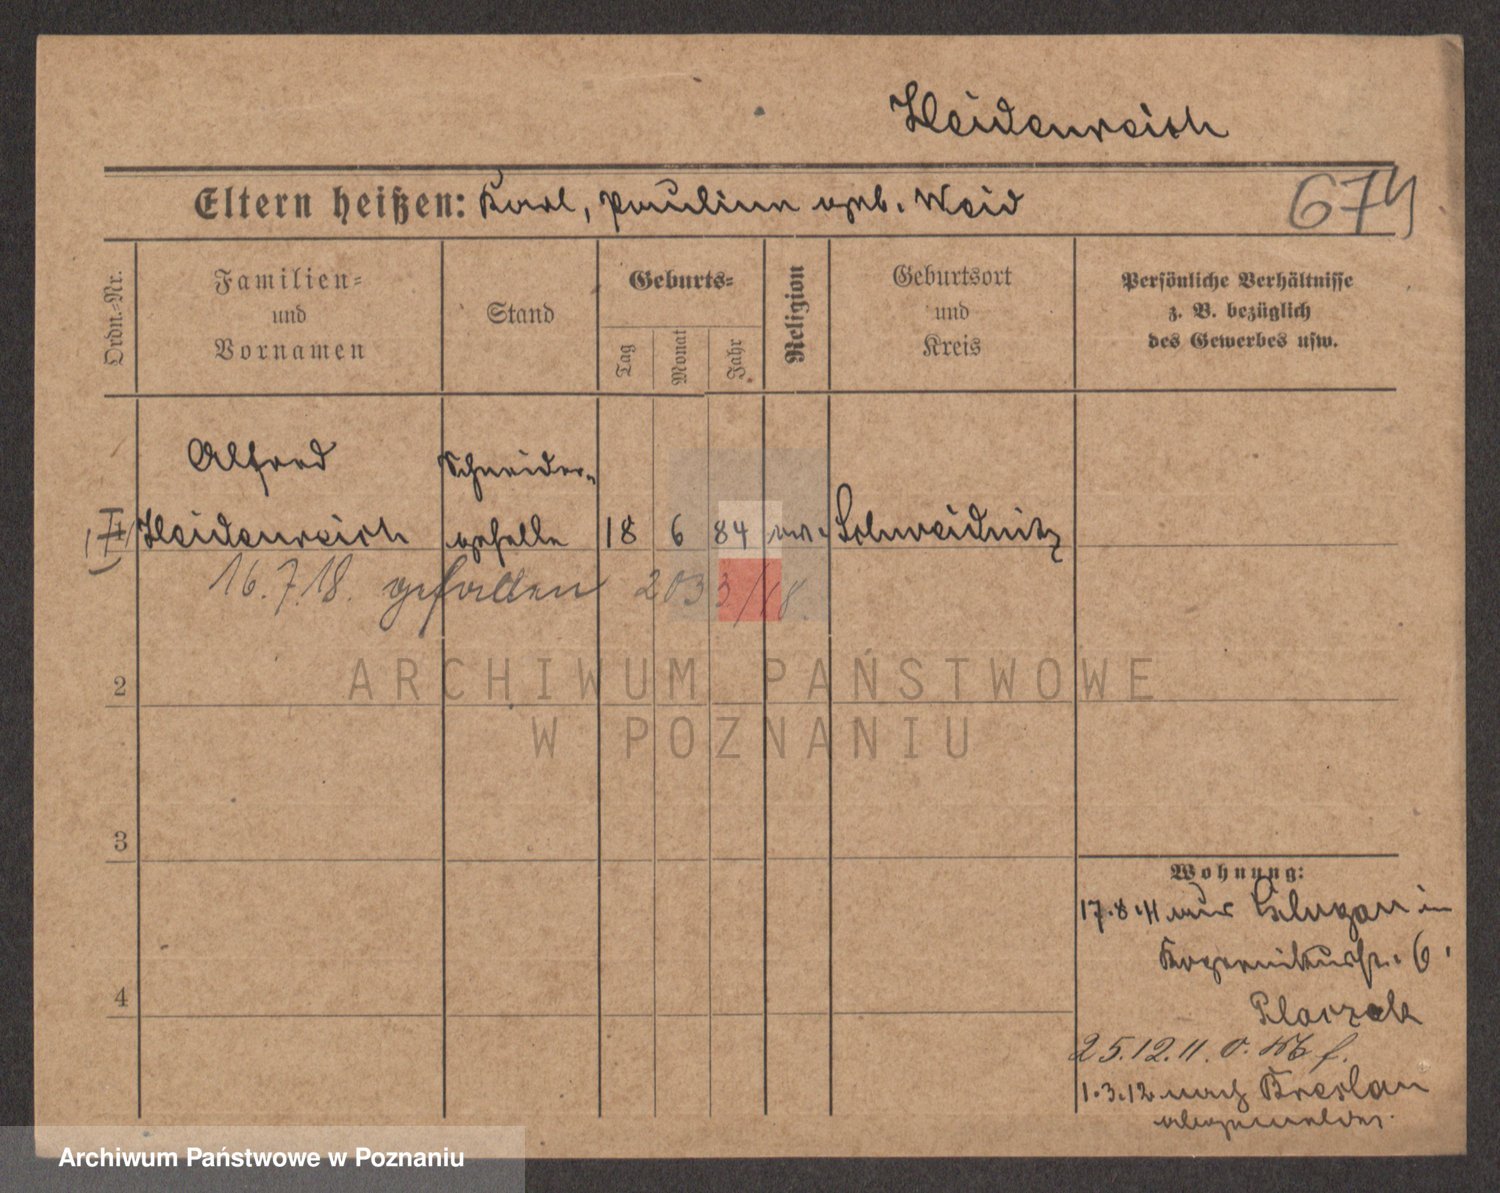 Heidenreich
Eltern heißen: Karl, Pauline geb. Weid
674
Ordn.-Nr.
Familien-
und
Vornamen
Stand
Geburts-
Tag
Monat
Jahr
Religion
Geburtsort
und
Kreis
Persönliche Verhältnisse
z. B. bezüglich
des Gewerbes usw.
Alfred
Heidenreich
Schneider-
geselle
18 6 84 ev.
Schweidnitz
16.7.18. gefallen 2033/18.
2
3
4
Wohnung:
17.8.11 aus in
Kopernikusstr. 6
Placzek
25.12.11. v.
1.3.12 nach Breslau
abgemeldet.
ARCHIWUM PAŃSTWOWE
W POZNANIU
Archiwum Państwowe w Poznaniu